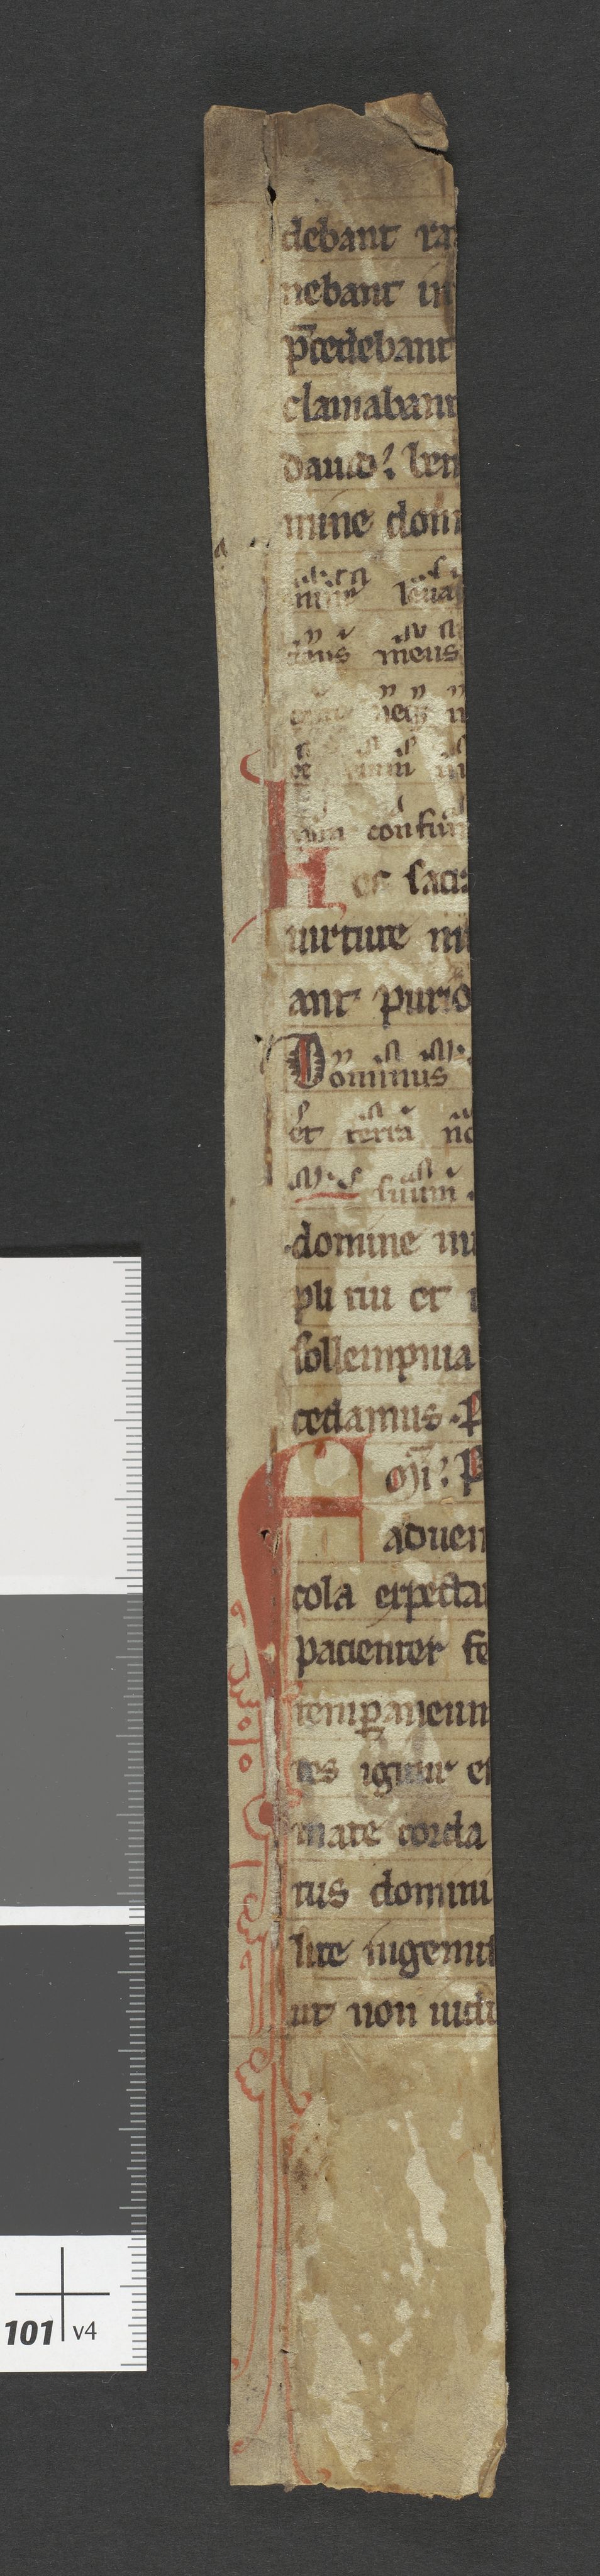 debant ra
nebant in
p̄cedebant
clamabant
dauid? ben
mine dom
leua
meus
neq;
confun
os sacr
uirtute m
ant purio
Dominus
et terra no
suum.
domine mi
pli tui et
sollempnia
cedamus. p
om̄i? p
aduen
cola expecta
pacienter fe
temporaneum
tes igitur et
mate corda
tus domini
lite ingemis
ut non iudi
101 v4